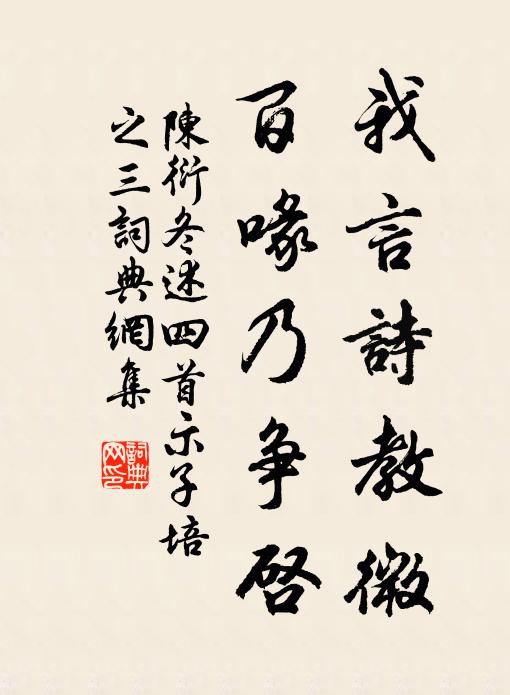 我言詩教微
百喙乃争啓
陳衍冬述四首示子培
之三詞典網集
詞典網印